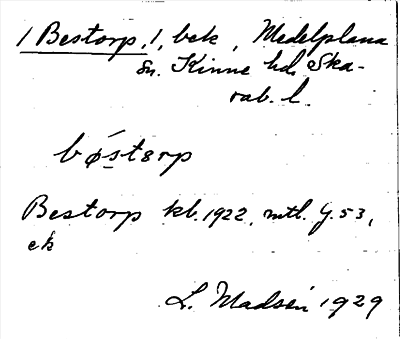 1 Bestorp, 1, bek, Medelplana
sn. Kinne hd. Ska-
rab. l.
bǿsterp
Bestorp kb. 1922, mtl. J. 53,
ek
L. Madsén 1929